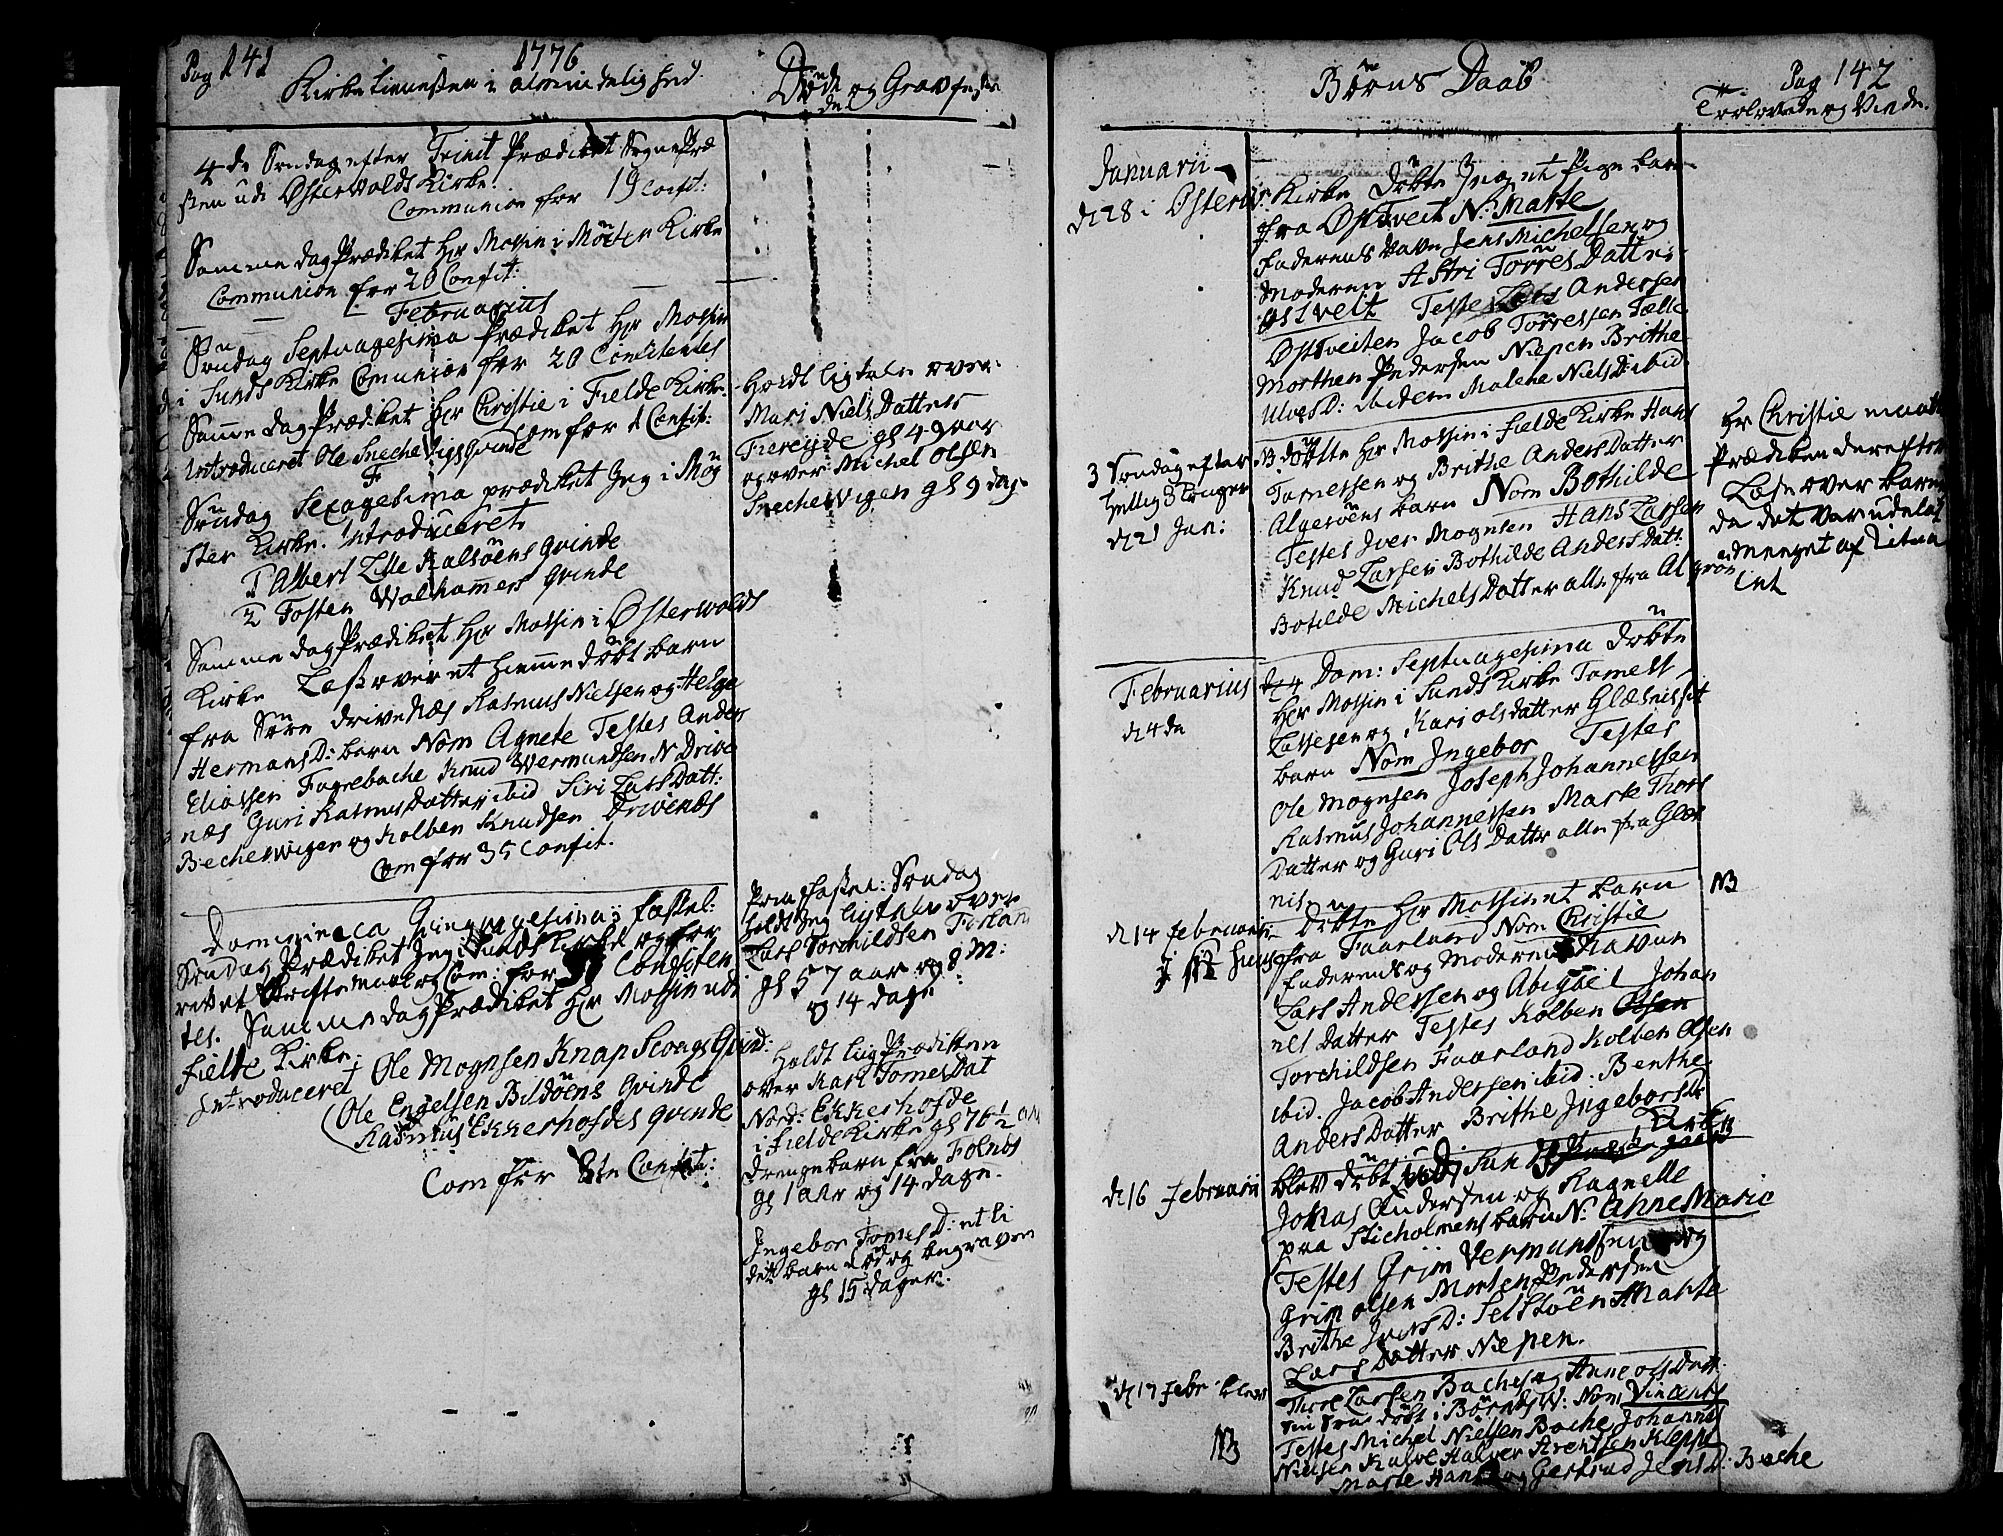 Pag 141
1776
Kirke tienesten i almindelighed.
Døde og Gravfeste
4de Søndag efter Trinit Prædiket Sogne Præ
sten udi Østerwolds Kirke.
Communion for 19 Confit:
Samme dag Prædiket Hr Mossin i Møster Kirke
Communion for 20 Confit:
Februarius
Søndag Septuagesima Prædiket Hr Mossin
i Sunds Kirke Comunion for 20 Confitentes
Samme dag Prædiket Hr Christie i Fielde Kirke.
Introduceret Ole Snechevigs Qvinde
Com for Confit:
Søndag Sexagesima prædiket Jeg i Møg
ster Kirke. Introduceret
1 Albert Lille Kalsøens qvinde
2 Tosten Walhammers qvinde
Samme dag Prædiket Hr Mossin i Østerwolds
Kirke Læst over et hiemmedøbt barn
fra Søre Drivenæs Rasmus Nielsen og Helge
Hermans D: barn Nom Agnete Testes Anders
Eliassen Fagrebache Knud Wermundsen N Drive
næs Guri Rasmus Datter ibid Siri Lars Datt:
Bechervigen og Kolben Knudsen Drivenæs
Com for 35 Confit.
Dominica Quinqvagesima: fastel:
Søndag Prædiket Jeg i Sunds Kirke og for
rettet Skriftemaal og Com: for Confiten
tes. Samme dag Prædiket Hr Mossin udi
Fielde Kirke.
Introduceret Ole Mognsen Knapscougs Qvind:
Ole Engelsen Bildøens qvinde
Rasmus Ekkerhofdes qvinde
Com for Confit:
Holdt ligtale over
Mari Niels Datter
Trereide gl 49 aar
og over Michel Olsen
Snechevigen gl 9 dage
Søndag
holdt Jeg ligtale over
Lars Torchildsen Forland
gl 57 aar og 8 M:
og 14 dage
Holdt ligPrædiken
over Kari Tomes Dat
Nord: Ekkerhofde
i Fielde Kirke gl 76 1/2 aar
Drengebarn fra Folnes
gl 1 Aar og 14 dage.
Ingebor Tomes D: et li
det barn død og begraven
gl 15 dager.
Børns Daab
Pag 142
Troloved og Viede.
Januarii
d 28 i Østerw: Kirke Døbte Jeg et Pige barn
fra Østtveit N: Matte
Faderens Navn Jens Michelsen og
Moderen Astri Torres Datter
Østveit Testes Lars Andersen
Østtveiten Jacob Torressen Tælle
Morthen Pedersen Nipen Brithe
Ulves D: ibidem Malene Niels D ibid
3 Søndag efter
Hellig 3 Konger
d 21 Jan:
NB døbte Hr Mossin i Fielde Kirke Hans
Tomessen og Brithe Anders Datter
Algerøens barn Nom Bothilde
Testes Iver Mognsen Hans Larsen
Knud Larsen Bothilde Anders Datt.
Botilde Michels Datter alle fra Algrøn
Hr Christie maatte
Prædiken derefter
Læse over barnet
da det var udelat
meeget af Ritua
let
Februarius
d 4de
Dom: Septuagesima Døbte
Hr Mossin i Sunds Kirke Tomess
Lassesen og Kari Olsdatter Glæsnisset
barn Nom Ingebor Testes
Ole Mognsen Joseph Johannessen
Rasmus Johannessen Marte Thors
Datter og Guri Ols Datter alle fra Glæs
nis
d 14 februarii
Døbte Hr Mossin et barn
fra Faarland Nom Christie
Faderens og Moderens Navne
Lars Andersen og Abigael Johan
nes Datter Testes Kolben Olsen
Torchildsen Faarland Kolben Olsen
ibid. Jacob Andersen ibid: Benthe
Anders Datter Brithe Ingebors D
NB
d 16 februarii
blev døbt udi Sun
Jonas Andersen og Ragnelle
paa Stieholmens barn N: Anne Marie
Testes Grim Vermundsen og
Grim Olsen Morten Pedersen
Brithe Ivers D: Selstøen Marte
Lars Datter Nepen.
d 17 Febr blev
NB
Thore Larsen Bache og Anne Ols Datt.
Søn døbt i Børnes W: Nom Vincents
Testes Michel Nielsen Bache Johannes
Nielsen Kalve Halver Arentsen Kleppe
Marte Hans og Gertrud Jens D: Bache